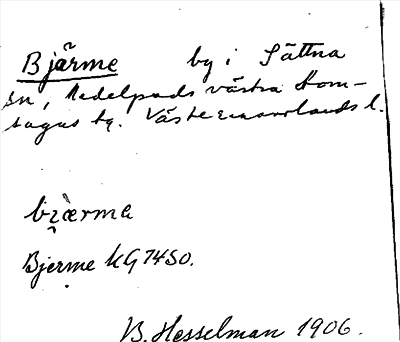 Bjärme by i Sättna
sn, Medelpads västra dom-
sagas tg. Västernorrlands l.
bi̯æ̀rma
Bjerme KG 74 SO.
B. Hesselman 1906.